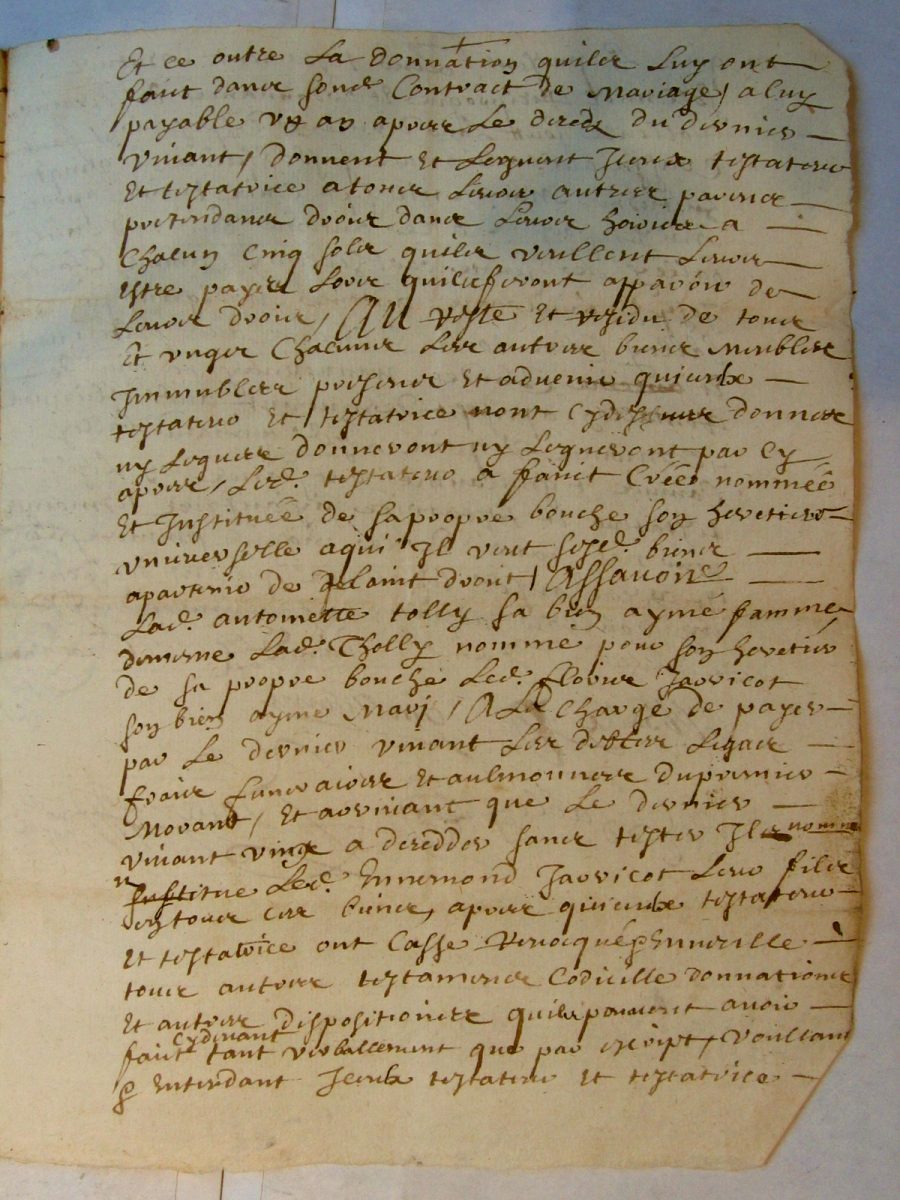 Et ce outre La donnation quilz Luy ont
fait dans sond. Contract de Mariage, a luy
payable un an apres Le deceds du dernier
vivant, donnent et Leguent Iceux testateur
Et testatrice a tous Leurs autres parens
pretendans droict dans Leurs hoiries a
Chacun Cinq solz quilz veullent Leurs
Estre payes Lors quilz feront apparoir de
Leurs droits, Au reste Et residu de tous
Et ungs Chacuns Les autres biens Meubles
Immeubles presens et advenir quiceulx
testateur Et testatrice nont Cydessus donnes
ny Legues donneront ny Legueront par Cy
apres, Led. testateur a fait Créée nommée
Et Instituée de sa propre bouche son heretiere
universelle a qui Il veut sesd. biens
apartenir de plaint droit, Assavoir
Lad. antoinette tolly sa bien aymé famme,
Lad. Tholly nomme pour son heretier
de sa propre bouche Led. Javricot
son bien ayme Mary, A La Charge de payer
par Le dernier vivant Les debtes Legats
frais funeraires et aulmonnes du premier
Morant, Et arrivant que Le dernier
vivant vinse a decedder sans tester Ilz nomme
Institue Led. Ennemond Javricot Leur filz
en tous ces biens, apres quiceulx testateur
Et testatrice ont Casse Revocqué Ennuelle
tous autres testamens Codicille donnations
Et autres dispositions quilz peuvent avoir
Cydevant
fait tant verballement que par escript, Voullant
Entendant Iceulx testateur Et testatrice